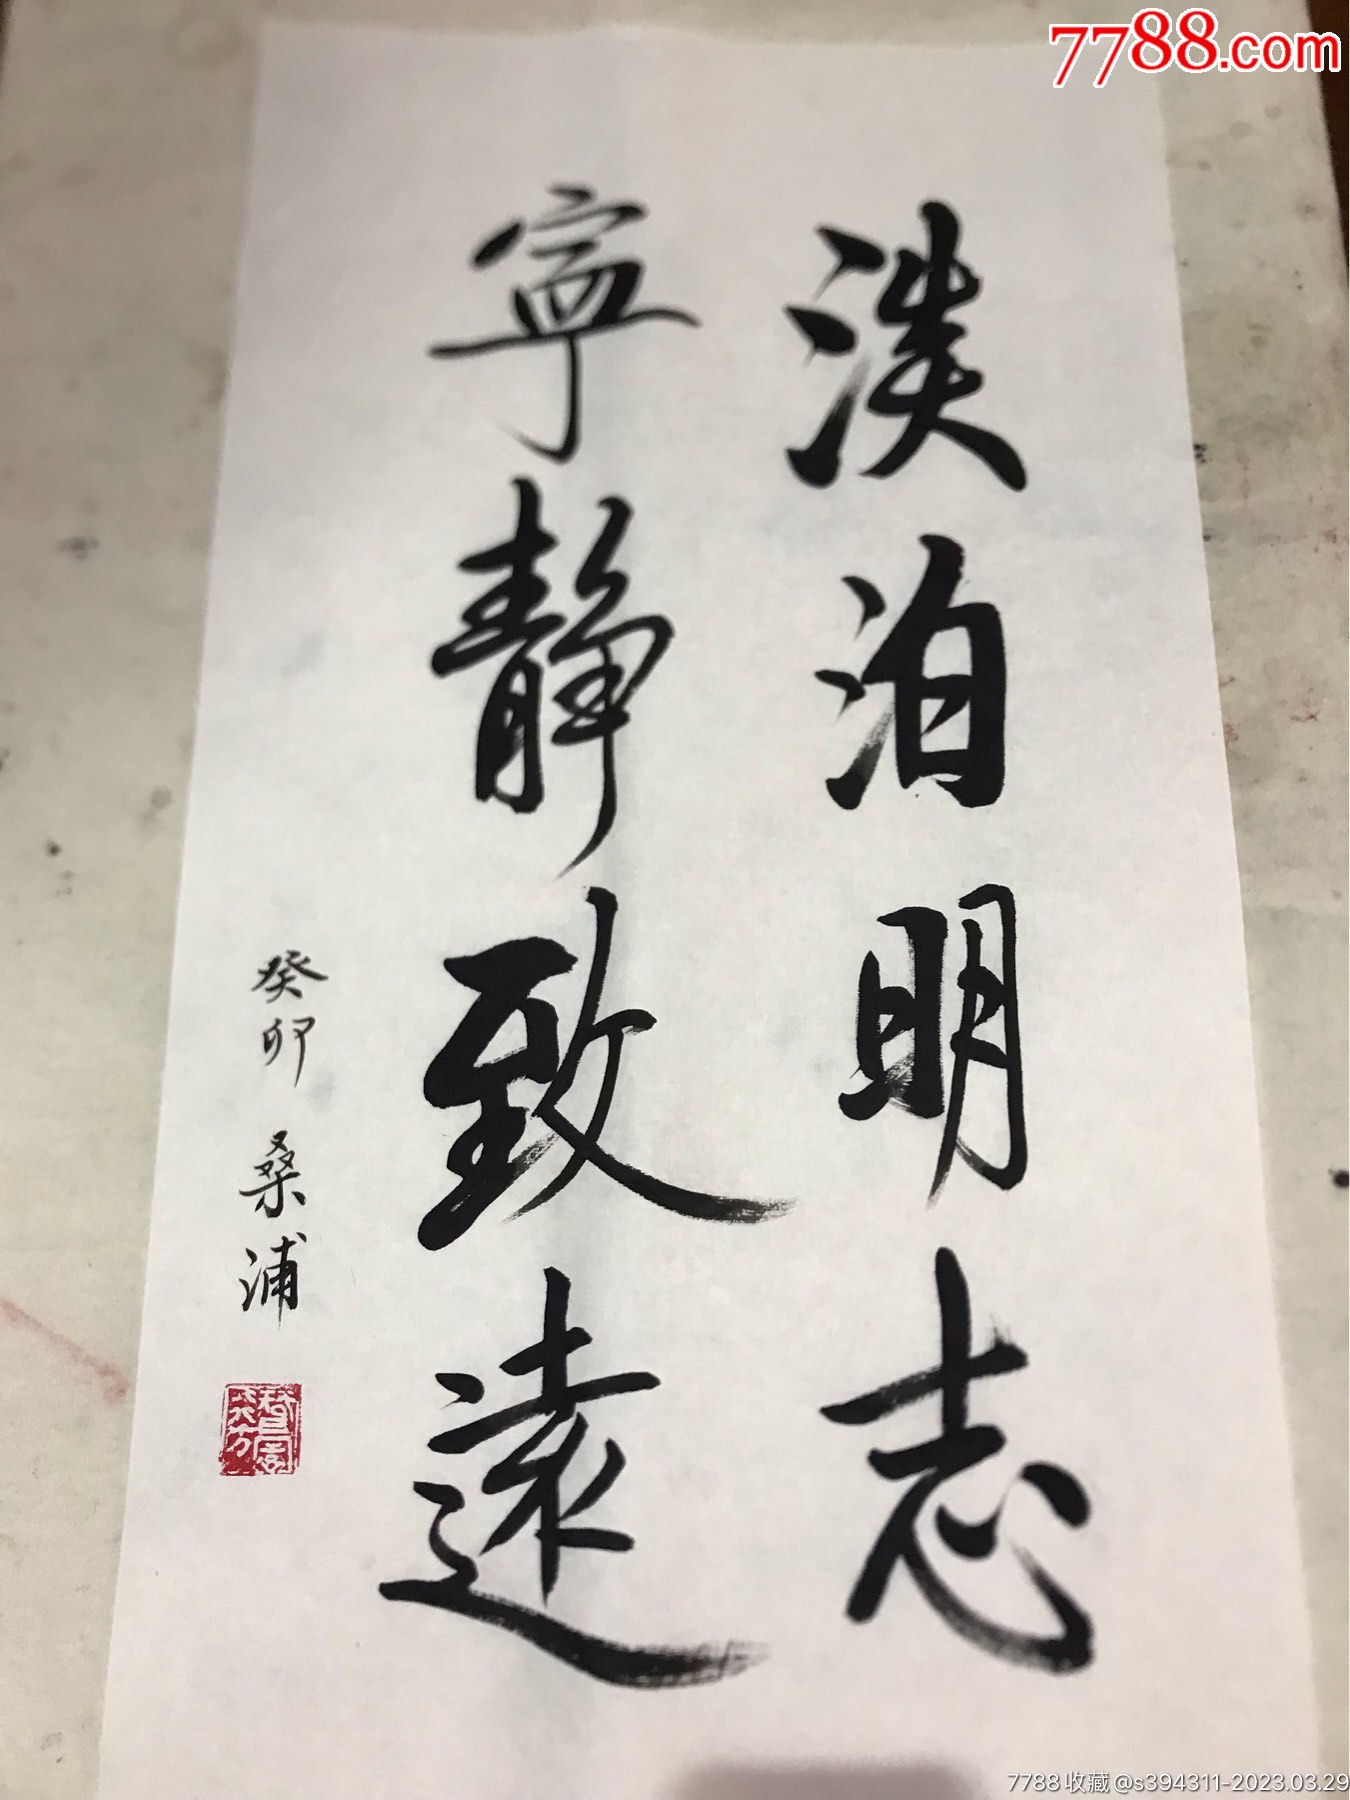 7788.com
淡泊明志
寧靜致遠
癸卯 桑浦
7788收藏@s394311-2023.03.29